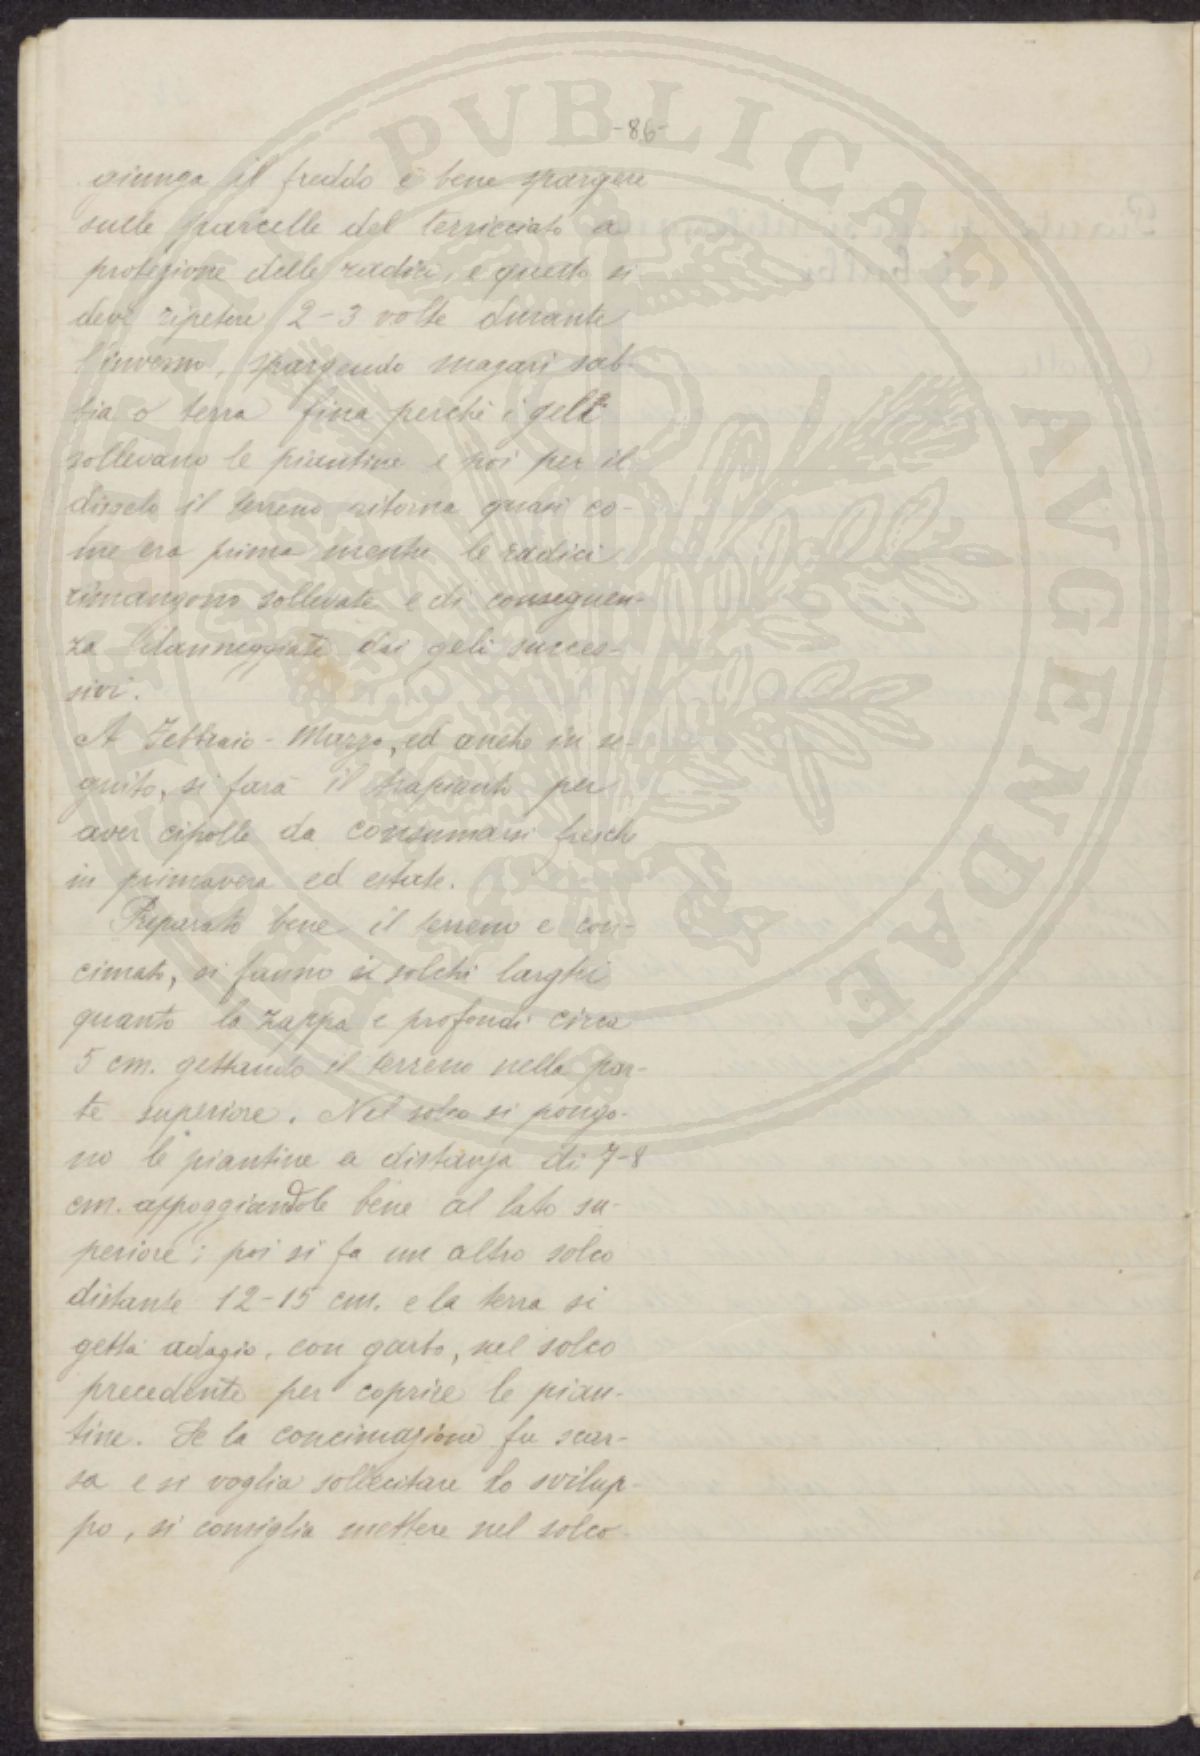 PROSPERITATI PVBLICAE AVGENDAE
-86-
giunga il freddo è bene spargere
sulle parcelle del terricciato a
protezione delle radici, e questo si
deve ripetere 2-3 volte durante
l'inverno, spargendo magari sab-
bia o terra fina perchè i geli
sollevano le piantine e poi per il
disgelo il terreno ritorna quasi co-
me era prima mentre le radici
rimangono sollevate e di conseguen-
za danneggiate dai geli succes-
sivi.
A Febbraio - Marzo, ed anche in se-
guito, si farà il trapianto per
aver cipolle da consumarsi fresche
in primavera ed estate.
Preparato bene il terreno e con-
cimato, si fanno i solchi larghi
quanto la zappa e profondi circa
5 cm. gettando il terreno nella par-
te superiore. Nel solco si pongo-
no le piantine a distanza di 7-8
cm. appoggiandole bene al lato su-
periore; poi si fa un altro solco
distante 12-15 cm. e la terra si
getta adagio, con garbo, nel solco
precedente per coprire le pian-
tine. Se la concimazione fu scar-
sa e si voglia sollecitare lo svilup-
po, si consiglia mettere nel solco